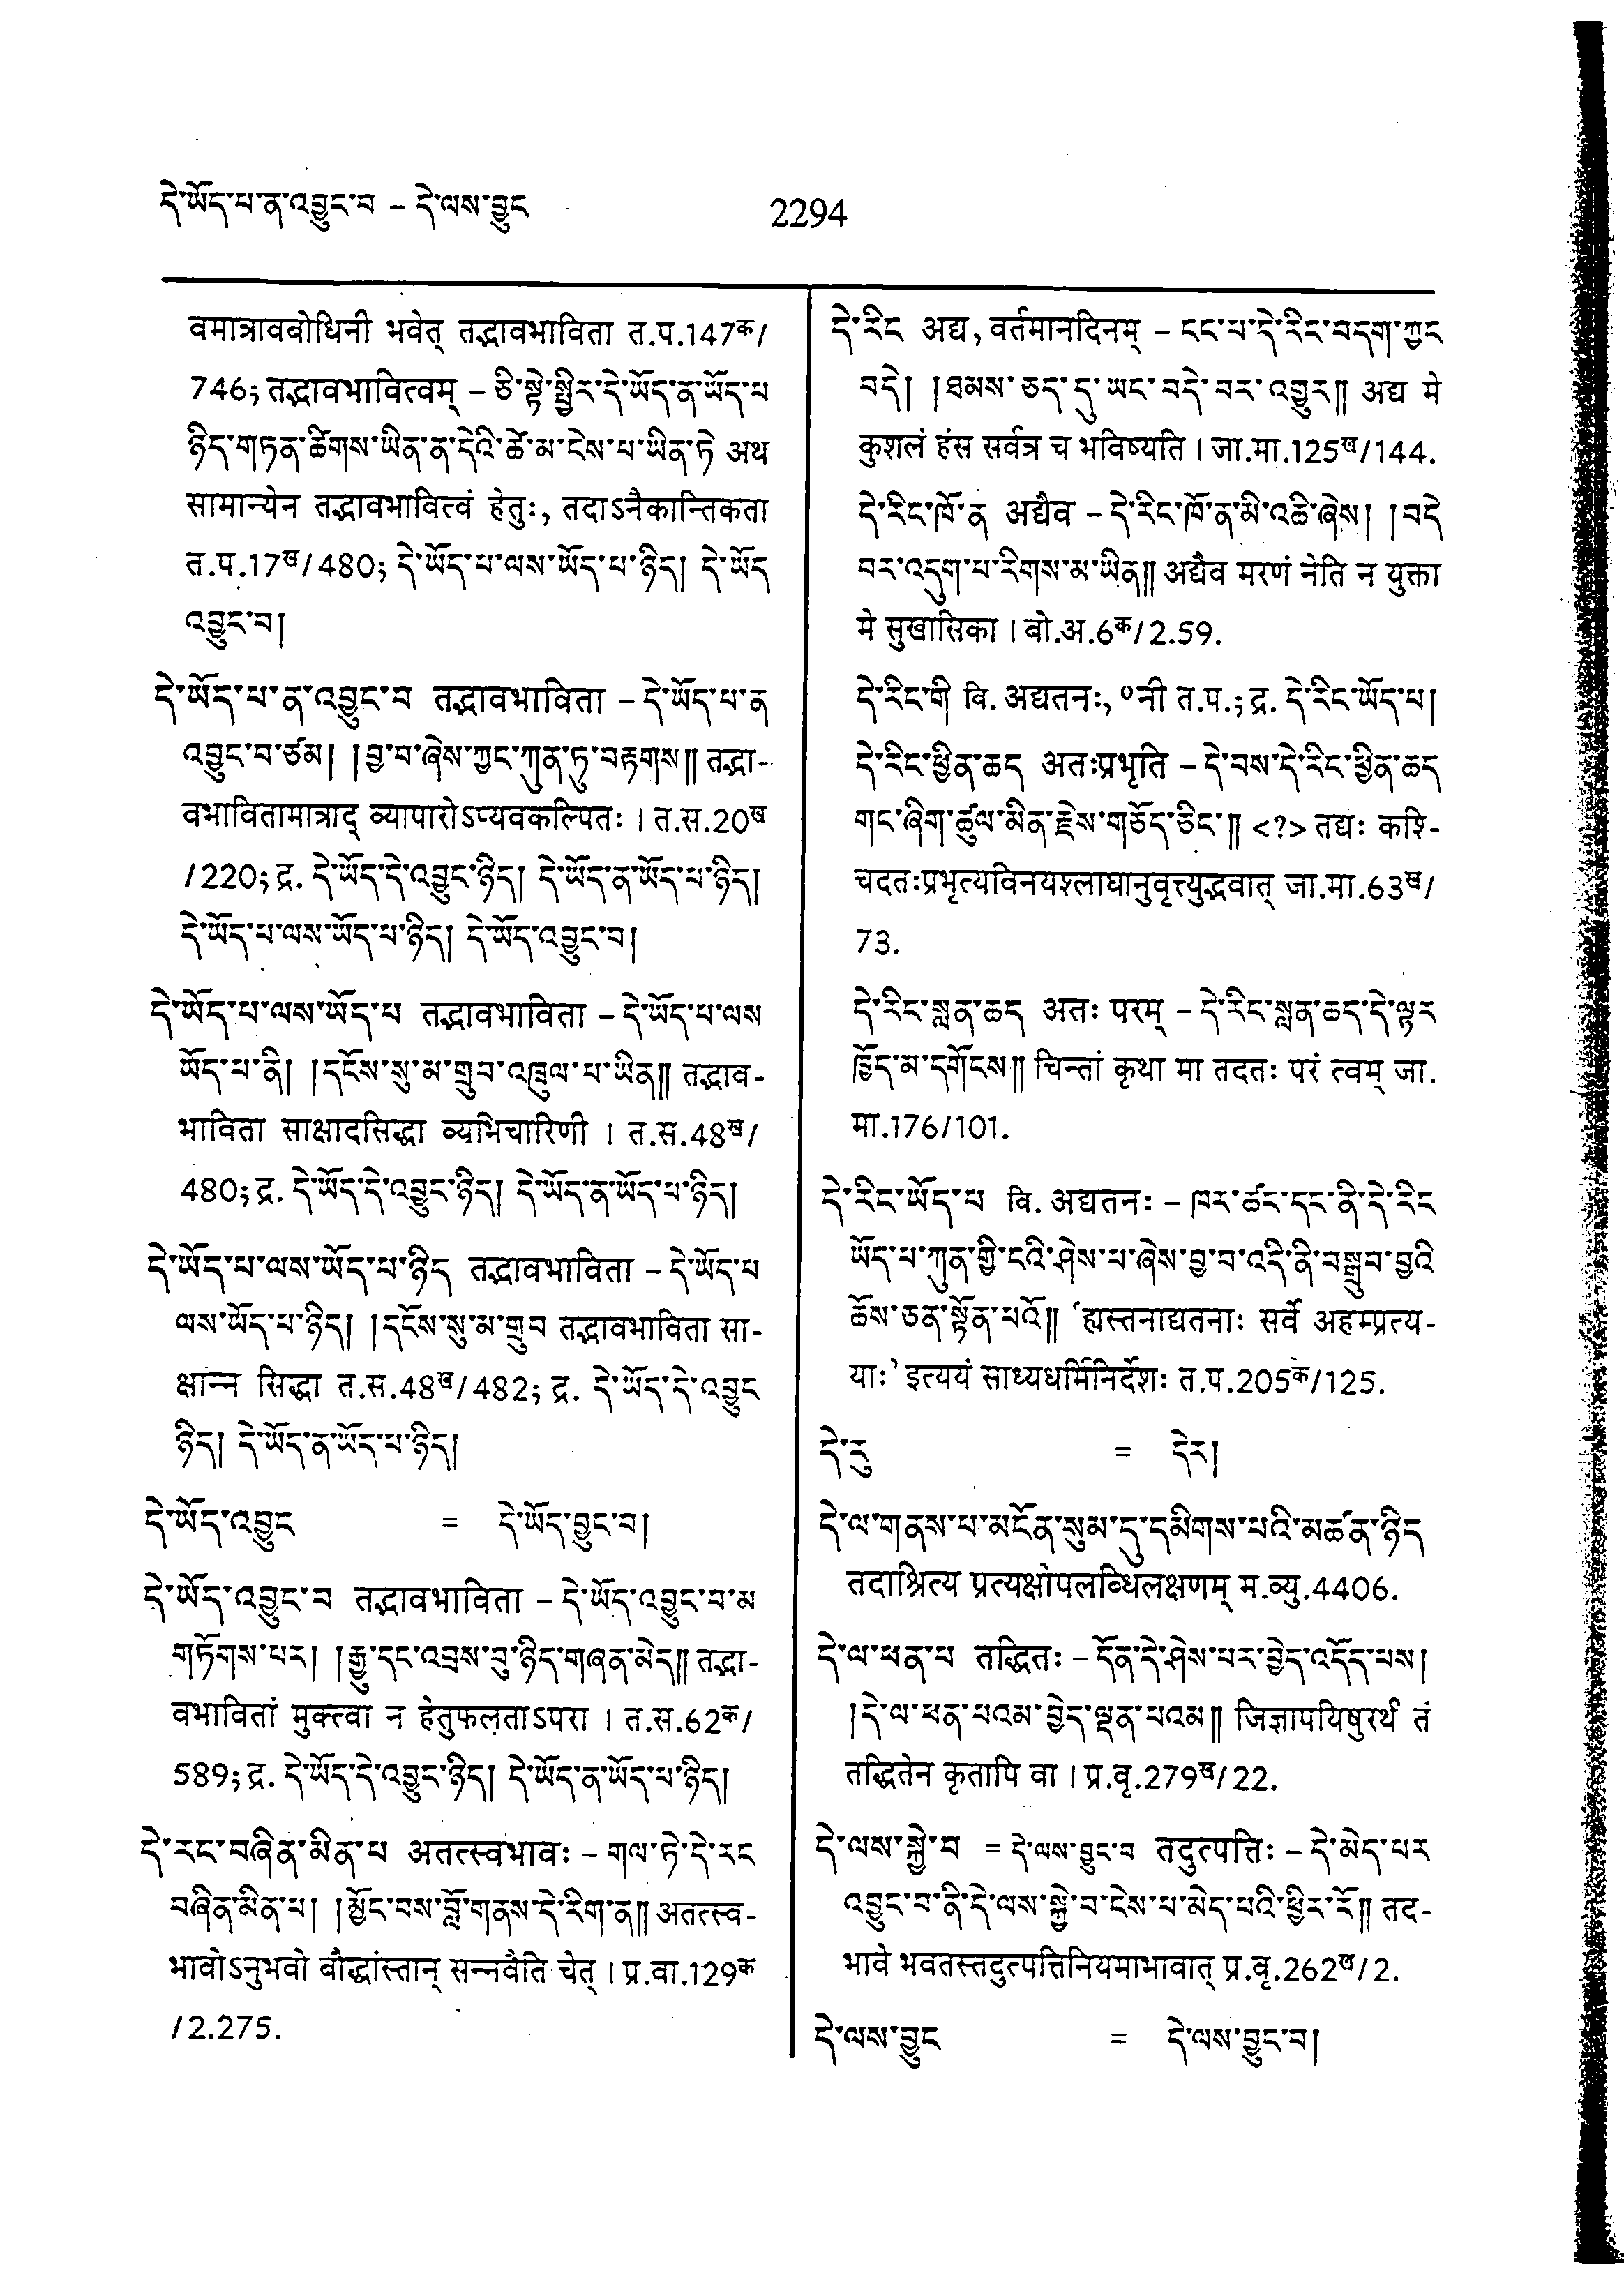 དེ་ཡོད་པ་ན་འབྱུང་བ – དེ་ལས་བྱུང
2294
वमात्राववोधिनी भवेत् तद्भावभाविता त.प.147ᳵक/
746; तद्भावभावित्वम् – ཅི་སྟེ་སྤྱིར་དེ་ཡོད་ན་ཡོད་པ
ཉིད་གཏན་ཚིགས་ཡིན་ན་དེའི་ཚེ་མ་ངེས་པ་ཡིན་ཏེ अथ
सामान्येन तद्भावभावित्वं हेतुः, तदाऽनैकान्तिकता
त.प.17ख/480; དེ་ཡོད་པ་ལས་ཡོད་པ་ཉིད། དེ་ཡོད
འབྱུང་བ།
དེ་ཡོད་པ་ན་འབྱུང་བ तद्भावभाविता – དེ་ཡོད་པ་ན
འབྱུང་བ་ཙམ། །བྱ་བ་ཞེས་ཀྱང་ཀུན་ཏུ་བརྟགས༎ तद्भा-
वभावितामात्राद् व्यापारोऽप्यवकल्पितः । त.स.20ख
/220; द्र. དེ་ཡོད་དེ་འབྱུང་ཉིད། དེ་ཡོད་ན་ཡོད་པ་ཉིད།
དེ་ཡོད་པ་ལས་ཡོད་པ་ཉིད། དེ་ཡོད་འབྱུང་བ།
དེ་ཡོད་པ་ལས་ཡོད་པ तद्भावभाविता – དེ་ཡོད་པ་ལས
ཡོད་པ་ནི། །དངོས་སུ་མ་གྲུབ་འཁྲུལ་པ་ཡིན༎ तद्भाव-
भाविता साक्षादसिद्धा व्यभिचारिणी । त.स.48ख/
480; द्र. དེ་ཡོད་དེ་འབྱུང་ཉིད། དེ་ཡོད་ན་ཡོད་པ་ཉིད།
དེ་ཡོད་པ་ལས་ཡོད་པ་ཉིད तद्भावभाविता – དེ་ཡོད་པ
ལས་ཡོད་པ་ཉིད། །དངོས་སུ་མ་གྲུབ तद्भावभाविता सा-
क्षान्न सिद्धा त.स.48ख/482; द्र. དེ་ཡོད་དེ་འབྱུང
ཉིད། དེ་ཡོད་ན་ཡོད་པ་ཉིད།
དེ་ཡོད་འབྱུང = དེ་ཡོད་བྱུང་བ།
དེ་ཡོད་འབྱུང་བ तद्भावभाविता – དེ་ཡོད་འབྱུང་བ་མ
གཏོགས་པར། །རྒྱུ་དང་འབྲས་བུ་ཉིད་གཞན་མེད༎ तद्भा-
वभावितां मुक्त्वा न हेतुफलताऽपरा । त.स.62क/
589; द्र. དེ་ཡོད་དེ་འབྱུང་ཉིད། དེ་ཡོད་ན་ཡོད་པ་ཉིད།
དེ་རང་བཞིན་མིན་པ अतत्स्वभावः – གལ་ཏེ་དེ་རང
བཞིན་མིན་པ། །མྱོང་བས་བློ་གནས་དེ་རིག་ན༎ अतत्स्व-
भावोऽनुभवो बौद्धांस्तान् सन्नवैति चेत् । प्र.वा.129क
/2.275.
དེ་རིང अद्य, वर्तमानदिनम् – ངང་པ་དེ་རིང་བདག་ཀྱང
བདེ། །ཐམས་ཅད་དུ་ཡང་བདེ་བར་འགྱུར༎ अद्य मे
कुशलं हंस सर्वत्र च भविष्यति । जा.मा.125ख/144.
དེ་རིང་ཁོ་ན अद्यैव – དེ་རིང་ཁོ་ན་མི་འཆི་ཞེས། །བདེ
བར་འདུག་པ་རིགས་མ་ཡིན༎ अद्यैव मरणं नेति न युक्ता
मे सुखासिका । बो.अ.6क/2.59.
དེ་རིང་གི वि. अद्यतनः, ॰नी त.प.; द्र. དེ་རིང་ཡོད་པ།
དེ་རིང་ཕྱིན་ཆད अतःप्रभृति – དེ་བས་དེ་རིང་ཕྱིན་ཆད
གང་ཞིག་ཚུལ་མིན་རྗེས་གཅོད་ཅིང་༎ <?> तद्यः कश्चि-
चदतःप्रभृत्यविनयश्लाघानुवृत्त्युद्भवात् जा.मा.63ख/
73.
དེ་རིང་སླན་ཆད अतः परम् – དེ་རིང་སླན་ཆད་དེ་ལྟར
ཁྱོད་མ་དགོངས༎ चिन्तां कृथा मा तदतः परं त्वम् जा.
मा.176/101.
དེ་རིང་ཡོད་པ वि. अद्यतनः – ཁར་ཚང་དང་ནི་དེ་རིང
ཡོད་པ་ཀུན་གྱི་ངའི་ཤེས་པ་ཞེས་བྱ་བ་འདི་ནི་བསྒྲུབ་བྱའི
ཆོས་ཅན་སྟོན་པའོ༎ ‘ह्यस्तनाद्यतनाः सर्वे अहम्प्रत्य-
याः’ इत्ययं साध्यधर्मिनिर्देशः त.प.205क/125.
དེ་རུ = དེར།
དེ་ལ་གནས་པ་མངོན་སུམ་དུ་དམིགས་པའི་མཚན་ཉིད
तदाश्रित्य प्रत्यक्षोपलब्धिलक्षणम् म.व्यु.4406.
དེ་ལ་ཕན་པ तद्धितः – དོན་དེ་ཤེས་པར་བྱེད་འདོད་པས།
།དེ་ལ་ཕན་པའམ་བྱེད་ལྡན་པའམ༎ जिज्ञापयिषुरर्थं तं
तद्धितेन कृतापि वा । प्र.वृ.279ख/22.
དེ་ལས་སྐྱེ་བ = དེ་ལས་བྱུང་བ तदुत्पत्तिः – དེ་མེད་པར
འབྱུང་བ་ནི་དེ་ལས་སྐྱེ་བ་ངེས་པ་མེད་པའི་ཕྱིར་རོ༎ तद-
भावे भवतस्तदुत्पत्तिनियमाभावात् प्र.वृ.262ख/2.
དེ་ལས་བྱུང = དེ་ལས་བྱུང་བ།